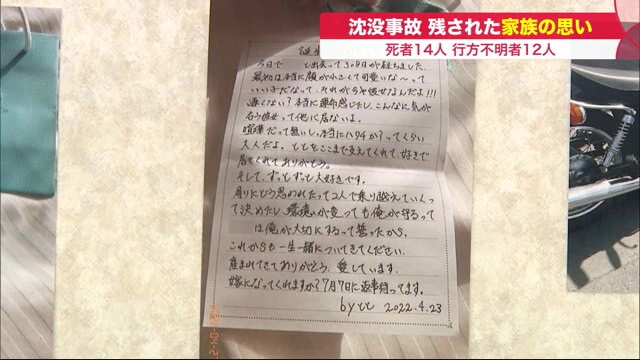 沈没事故 残された家族の思い
死者14人 行方不明者12人
誕生
今日で と出会って308日が経ちました。
最初は本当に顔が小さくて可愛いな〜って
いい子だなって、それが今や彼女なんだよ!!!
凄くない?本当に運命感じたし、こんなに気が
合う彼女って他に居ないよ。
喧嘩だって無いし、本当にハタチか?ってくらい
大人だよ。ととをここまで支えてくれて、好きで
居てくれてありがとう。
そして、ずっとずっと大好きです。
周りにどう思われたって2人で乗り越えていくっ
て決めたし、環境が変っても俺が守るって
は俺が大切にするって誓ったから、
これからも一生一緒についてきてください。
産まれてきてありがとう、愛しています。
嫁になってくれますか?7月7日に返事待ってます。
byとと 2022.4.23